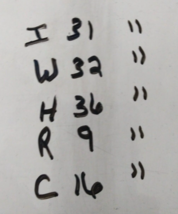 I 31 "
W 32 "
H 36 "
R 9 "
C 16 "